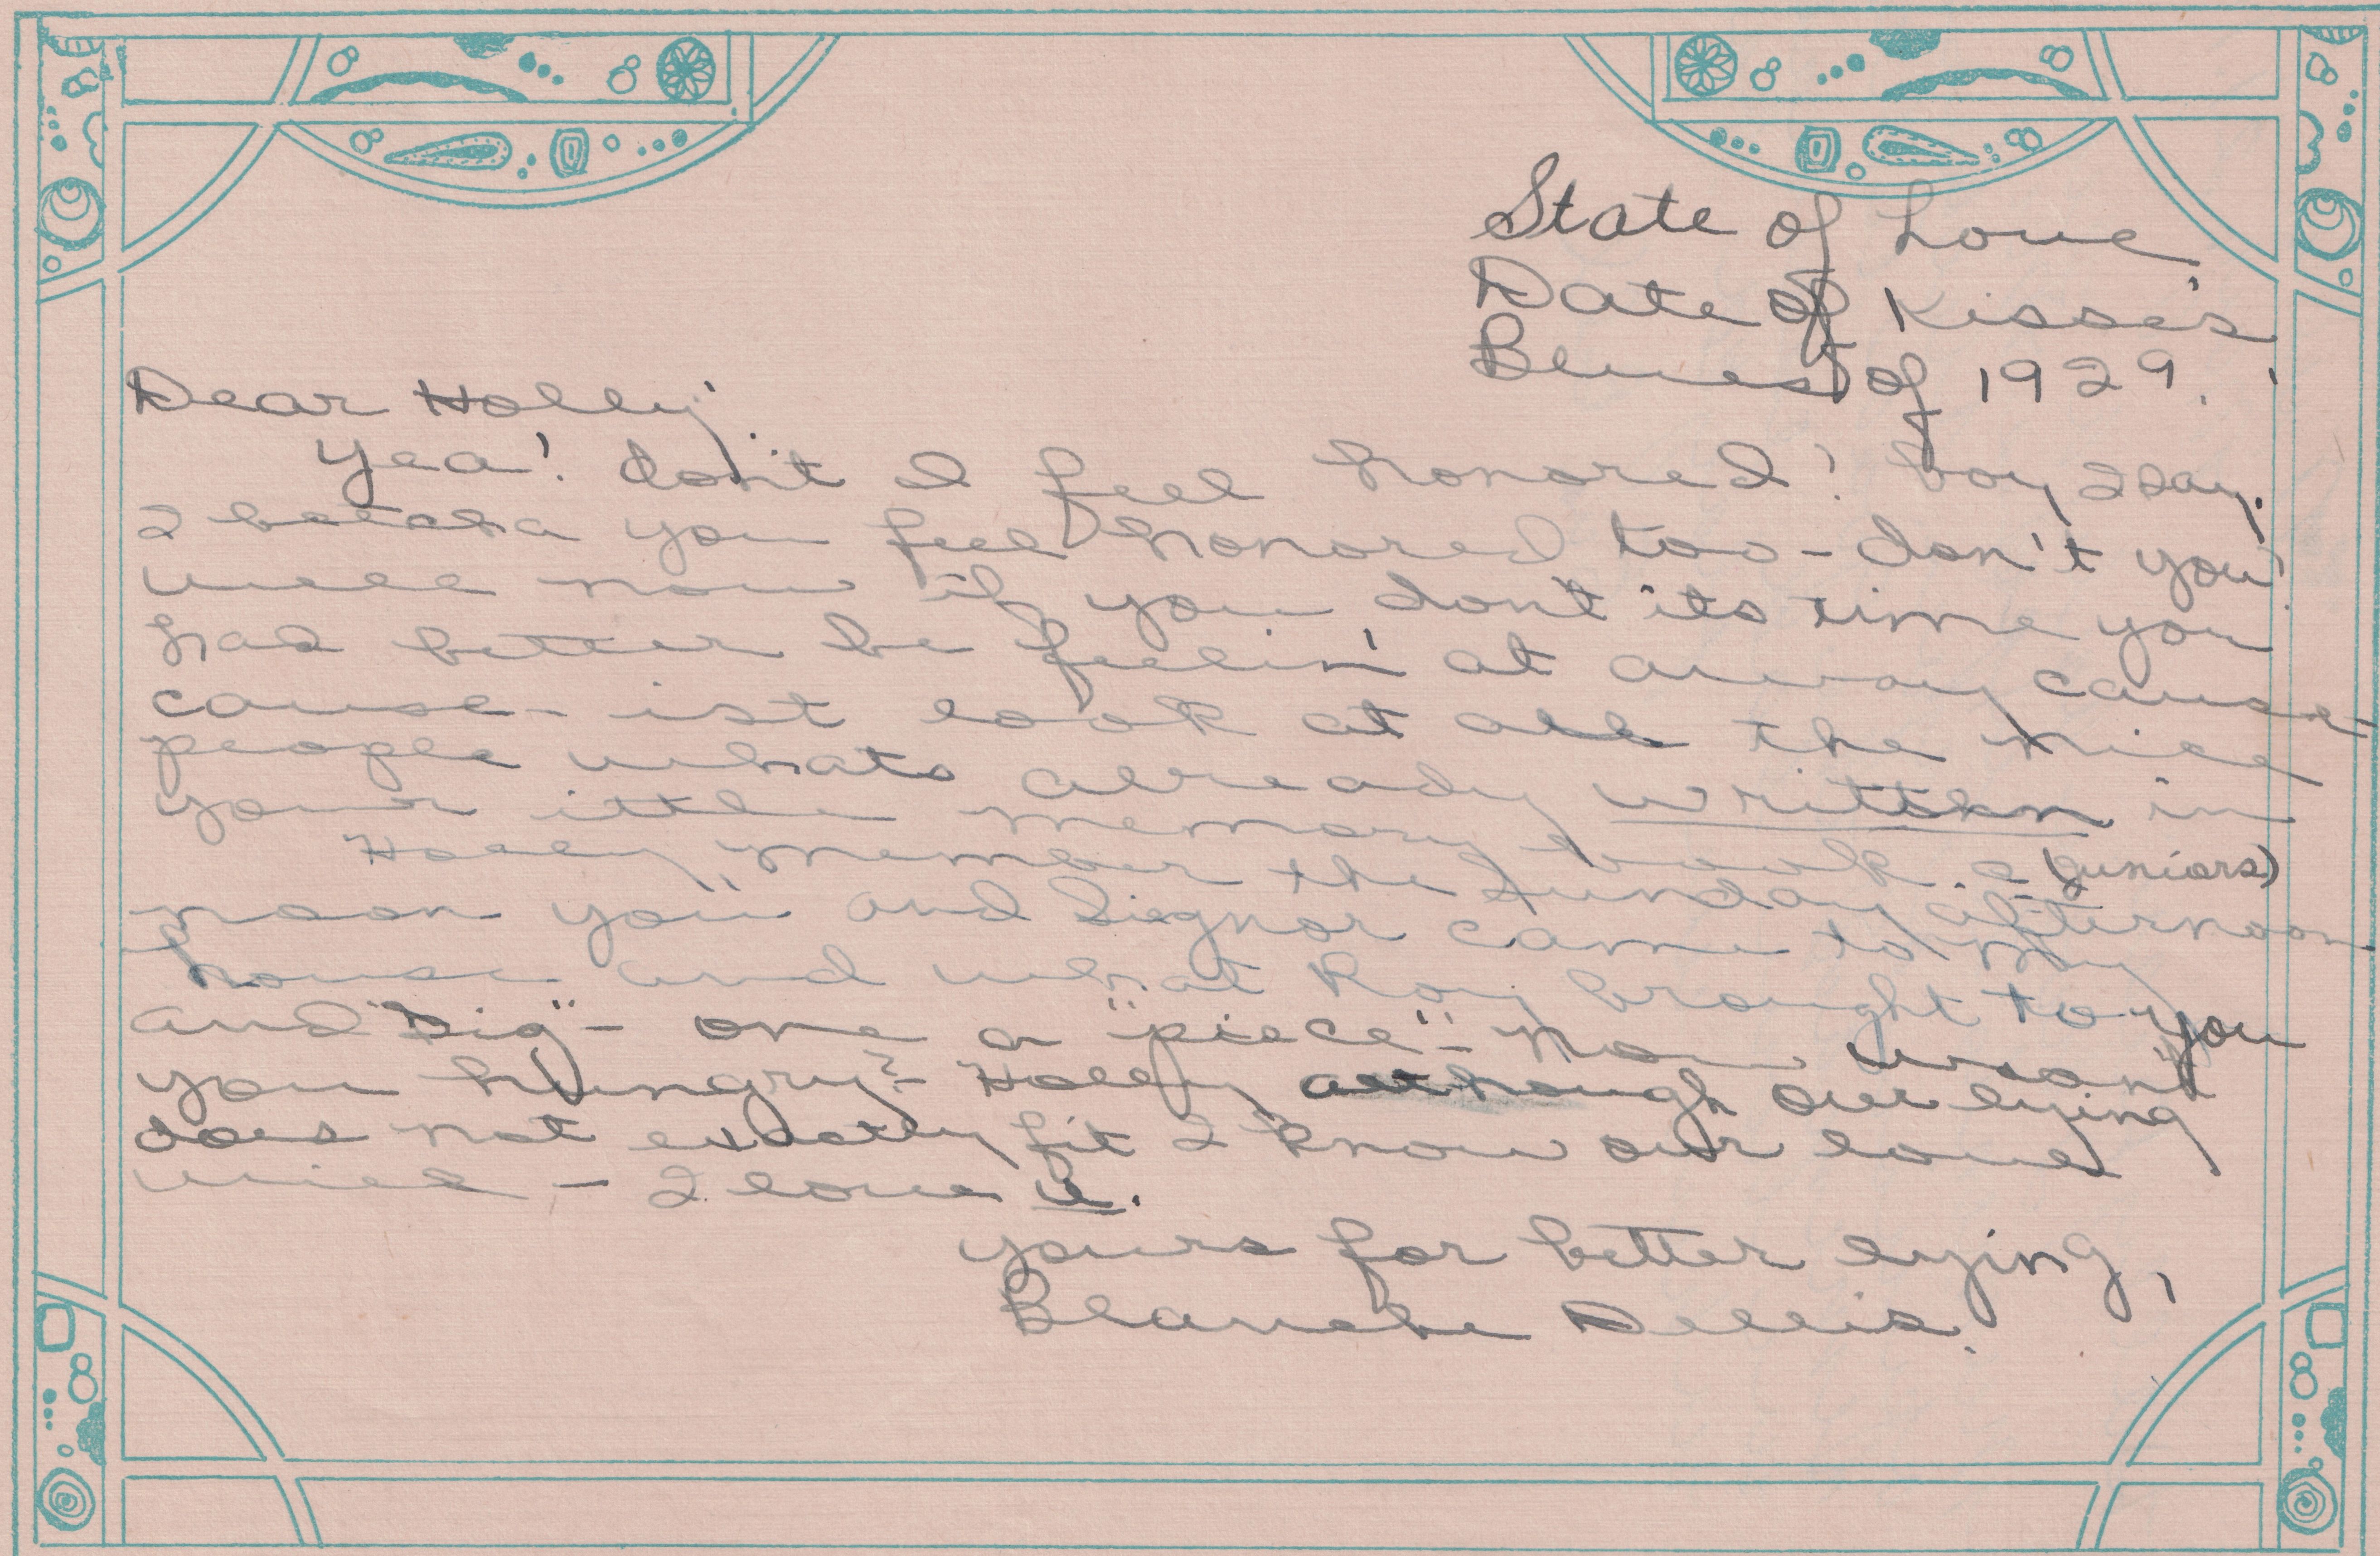 State of Love,
Date of Kisses
Blues of 1929.
Dear Holly:
Yea! don't I feel honored! boy I say.
I betcha you feel honored too - don't you?
well now if you don't its time you
had better be feelin' at away cause
cause - ist look at all the nice
people whats already written in
your ittle memory book.
(Juniors)
Holly member the Sunday afternoon
noon you and Signor came to my
house and what Roy brought to you
and "Sig" - one a "piece" - Now wasn't
you hungry? - Holly although our lying
does not exactly fit I know our love
will - I love U.
Yours for better lying,
Blanche Dellis.